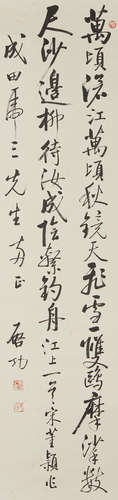 萬頃滄江萬頃秋鏡天飛雪一雙鷗摩挲數
尺沙邊柳待汝成陰繫釣舟 江上一首 宋董穎作
成田虎三先生正 啟功